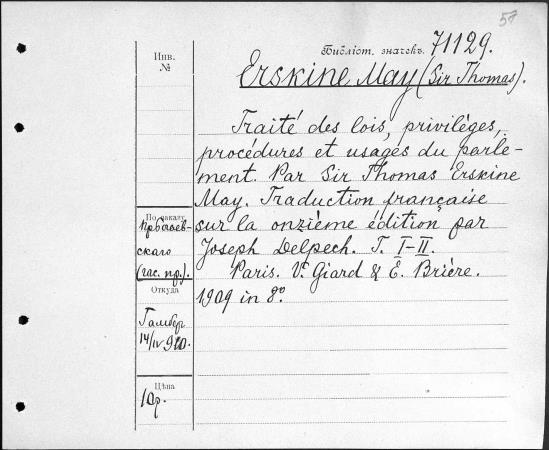 57
Библіот. значекъ. 71129.
Инв.
№
Erskine May (Sir Thomas).
Traité des lois, privilèges,
procédures et usages du parle-
ment. Par Sir Thomas Erskine
May. Traduction française
sur la onzième édition par
Joseph Delpech. T. I-II.
Paris. V. Giard & E. Brière.
1909 in 8º
По заказу
скаго
(гас. пр.).
Откуда
14/IV 910
Цѣна
10р.